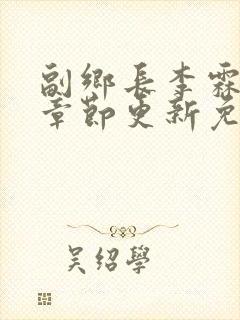 副鄉長李霖
章節更新免
吳紹學